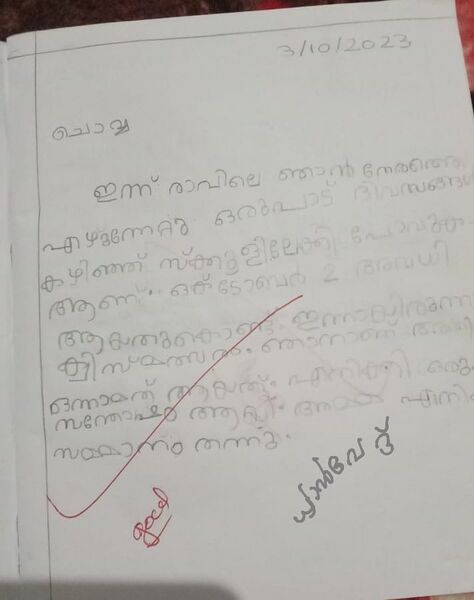 3/10/2023
ചൊവ്വ
ഇന്ന് രാവിലെ ഞാൻ നേരത്തെ
എഴുന്നേറ്റു ഒരുപാട് ദിവസങ്ങൾ
കഴിഞ്ഞ് സ്ക്കൂളിലേക്ക് പോവുക
ആണ്. ഒക്ടോബർ 2 അവധി
ആയതുകൊണ്ട്. ഇന്നായിരുന്നു
ക്വിസ് മത്സരം. ഞാനാണ് അതിൽ
ഒന്നാമത് ആയത്. എനിക്ക് ഒരുപാട്
സന്തോഷം ആയി. അമ്മ എനിക്ക്
സമ്മാനം തന്നു.
good